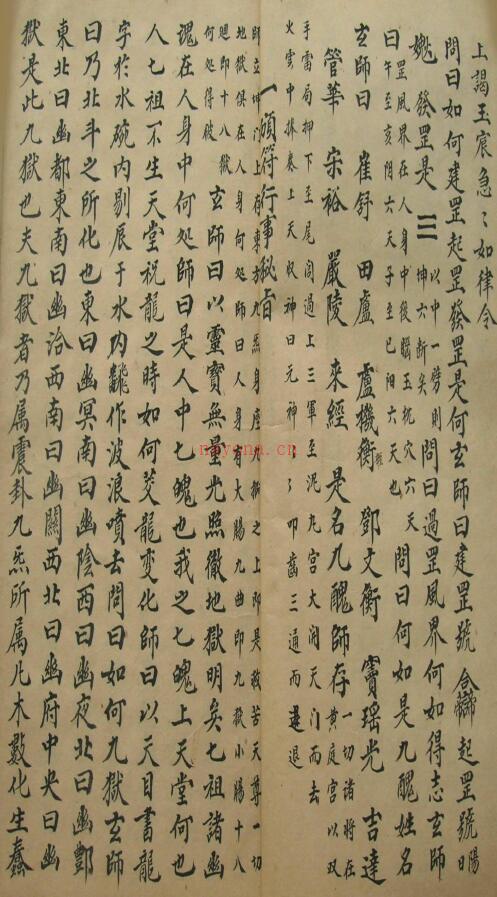 上謁玉宸急〻如律令
問曰如何建罡起罡發罡是何玄師曰建罡號 起罡號陽
發罡是三以中一勞則坤六斷矣問曰過罡風界何如得志玄師
曰罡風界在人身中後腦玉枕穴六天午至亥陰六天子至巳陽六天也問曰何如是九醜姓名
玄師曰 崔舒 田盧 盧機衡 鄧文衡 竇瑤光 吉達
管華 宋裕 嚴陵 來經 是名九醜師存一切諸將在黃庭宮以双
手雷局押下至尾閭過上三軍至泥丸宮大開天门而去
火雲中捧表上天収神曰元神〻〻叩齒三通而退
一頒符行事秘旨
師立坤门存東方九炁身座九獄之上即是救苦天尊一切
地獄俱在人身何処師曰人身有大腸九曲即九獄小腸十八
廻即十八獄
何処得破
玄師曰以靈寶無量光照徹地獄明矣七祖諸幽
魂在人身中何処師曰是人中七魄也我之七魄上天堂何也
人七祖不生天堂祝龍之時如何芰龍变化師曰以天目書龍
字於水碗內剔辰于水內龖作波浪噴去問曰如何九獄玄師
曰乃北斗之所化也東曰幽冥南曰幽陰西曰幽夜北曰幽酆
東北曰幽都東南曰幽治西南曰幽關西北曰幽府中央曰幽
獄是此九獄也夫九獄者乃属震卦九炁所属凡木數化生蠢
nayona.cn